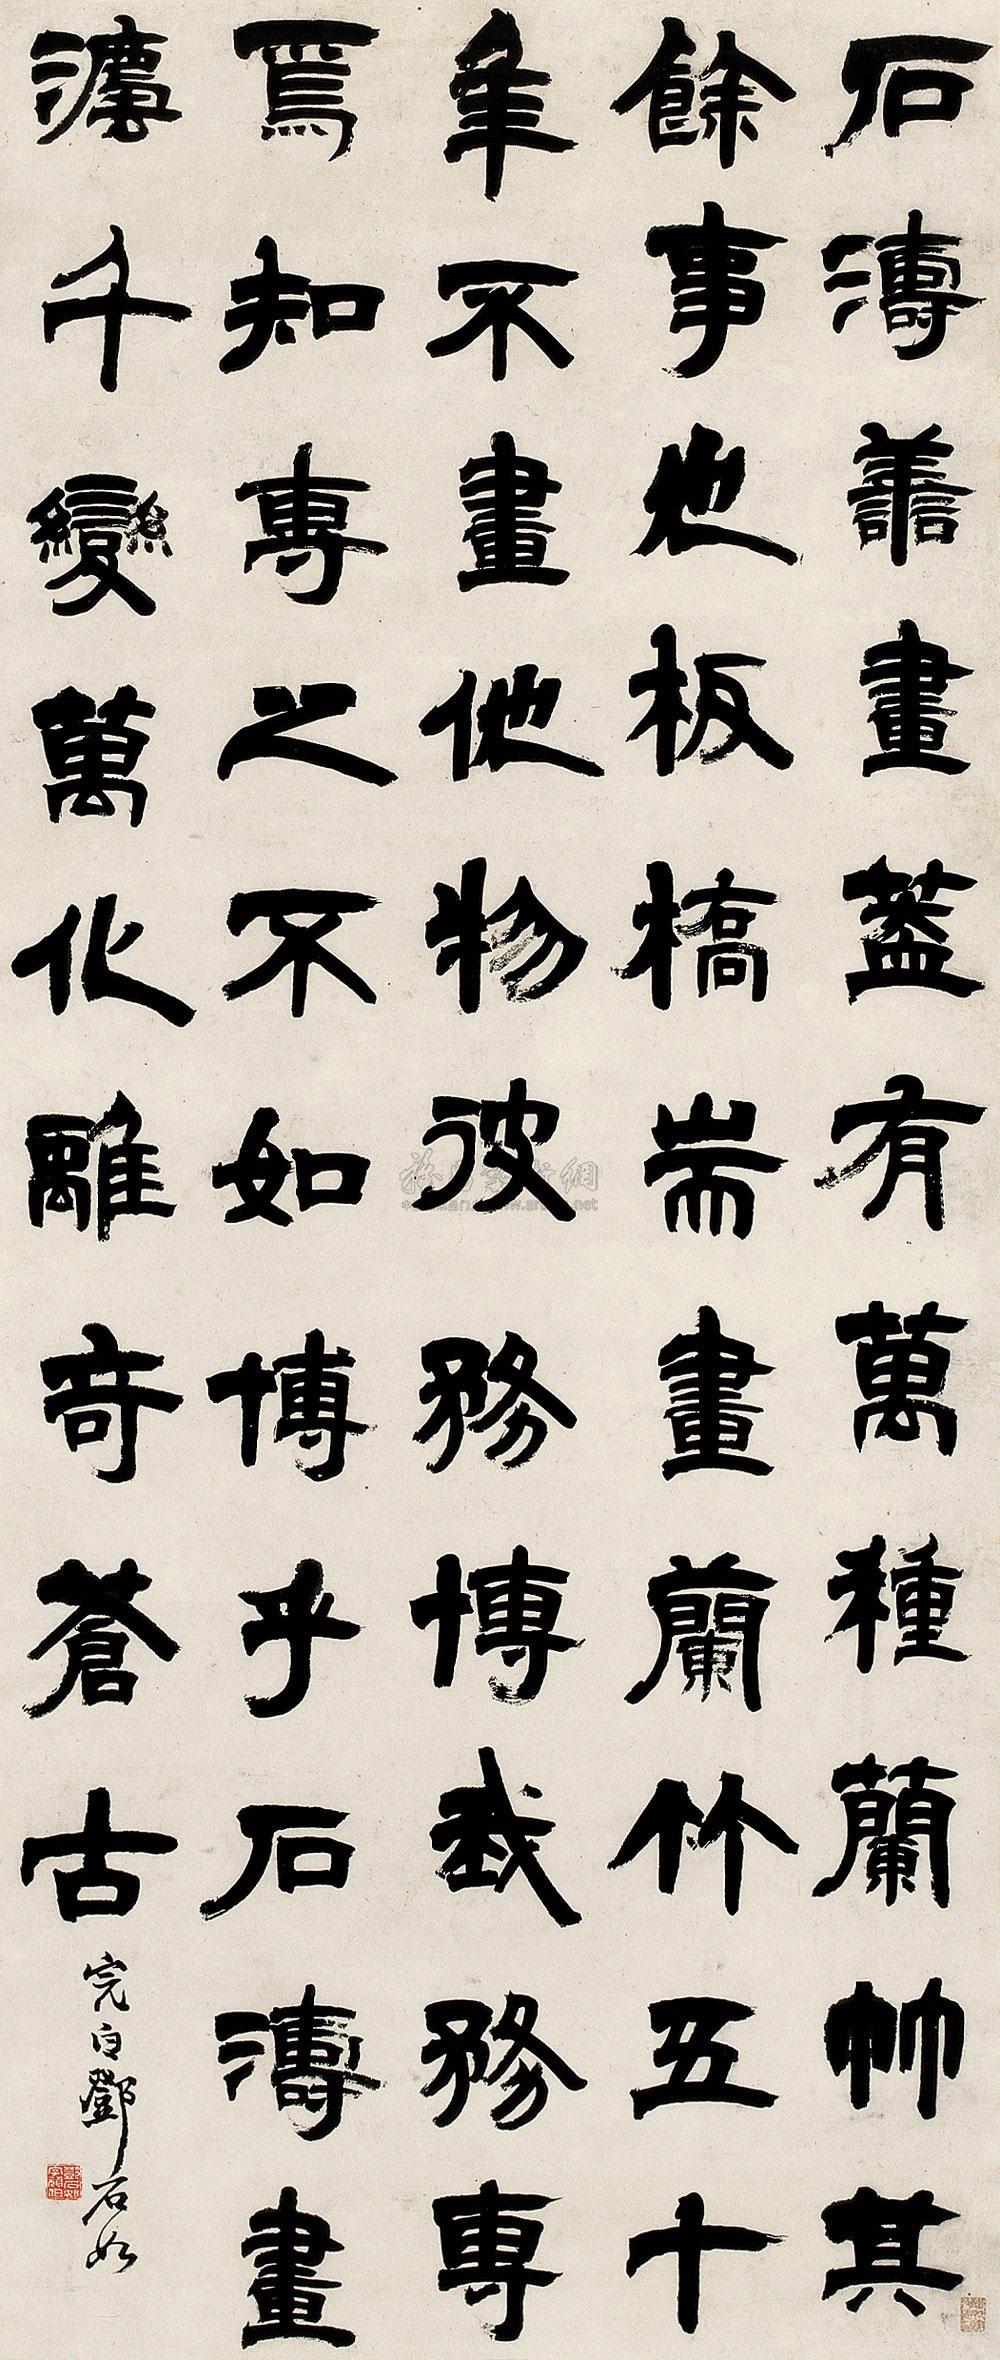 石濤善畫蓋有萬種蘭竹其
餘事也板橋耑畫蘭竹五十
年不畫他物彼務博我務專
焉知專之不如博乎石濤畫
法千變萬化離奇蒼古
完白鄧石如